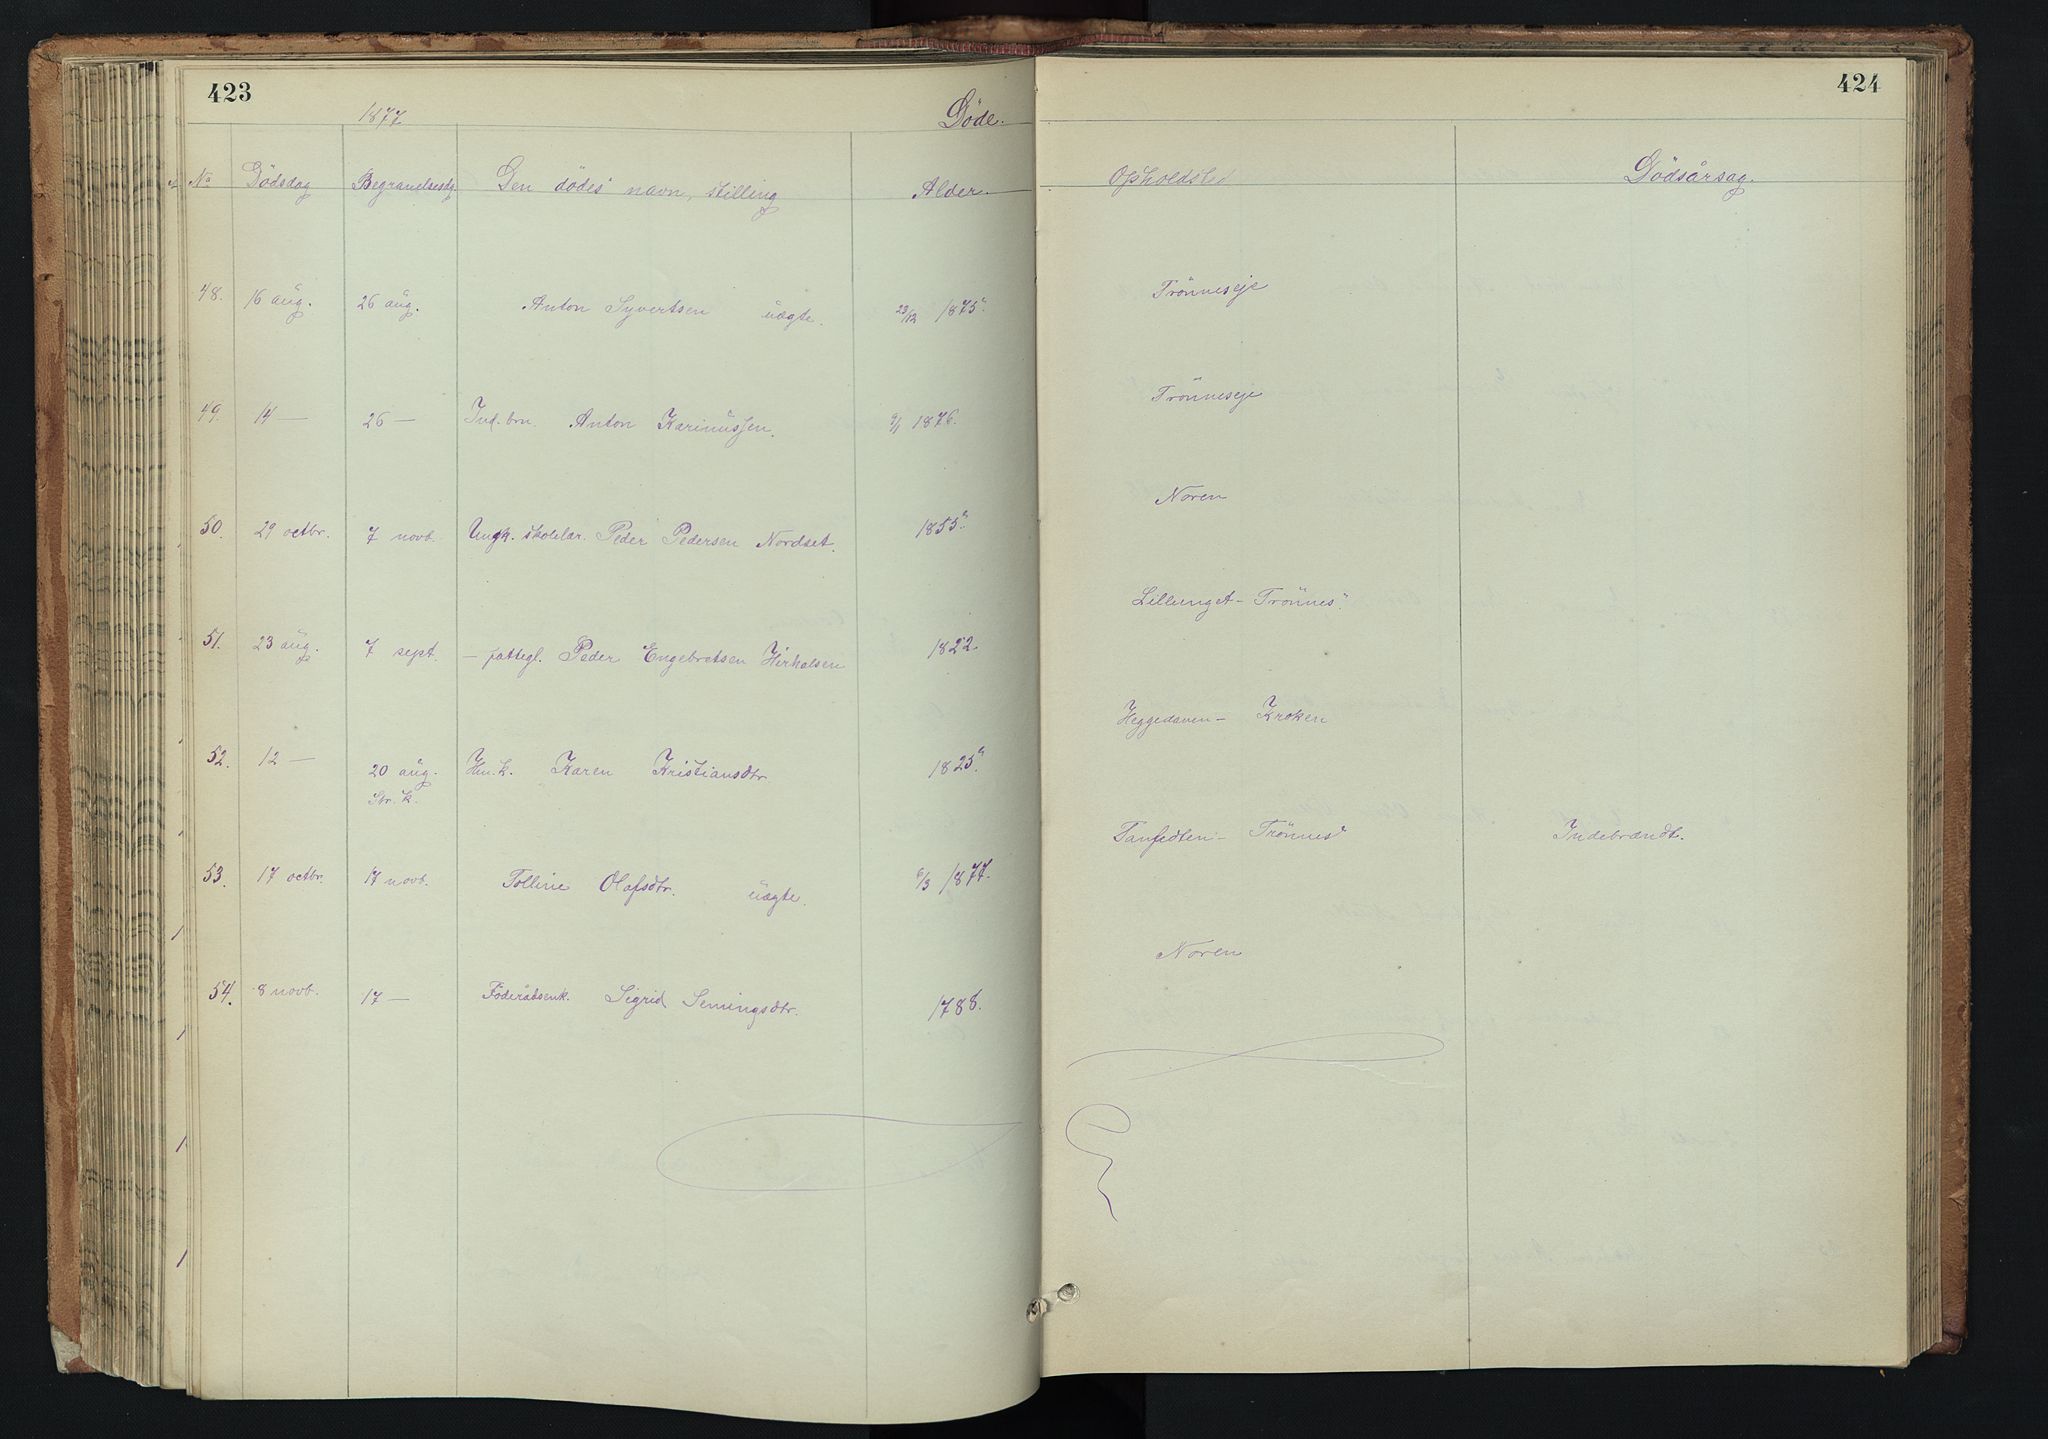 423
1877
Döde.
No Dödsdag Begravelsesdg Den dödes navn, stilling Alder.
48. 16 aug. 26 aug. Anton Syvertsen uægte. 23/12 1875.
49. 14 — 26 — Ind. brn. Anton Karinussen. 9/1 1876.
50. 29 octbr. 7 novb. Ungk. skolelær. Peder Pedersen Nordset. 1855.
51. 23 aug. 7 sept. — fattegl. Peder Engebretsen 1822.
52. 12 — 20 aug. Hm. k. Karen Kristiansdtr. 1825.
Str. k.
53. 17 octbr. 17 novb. Tolline Olafsdtr. uægte. 6/3 1877.
54. 8 novb. 17 — Föderådsenk. Sigrid Semingsdtr. 1788.
424
Opholdsted Dödsårsag.
Trönneseje
Trönneseje
Noren
Lillunget - Trönnes.
Heggedaven - Kroken
Trönnes Indebrændt.
Noren